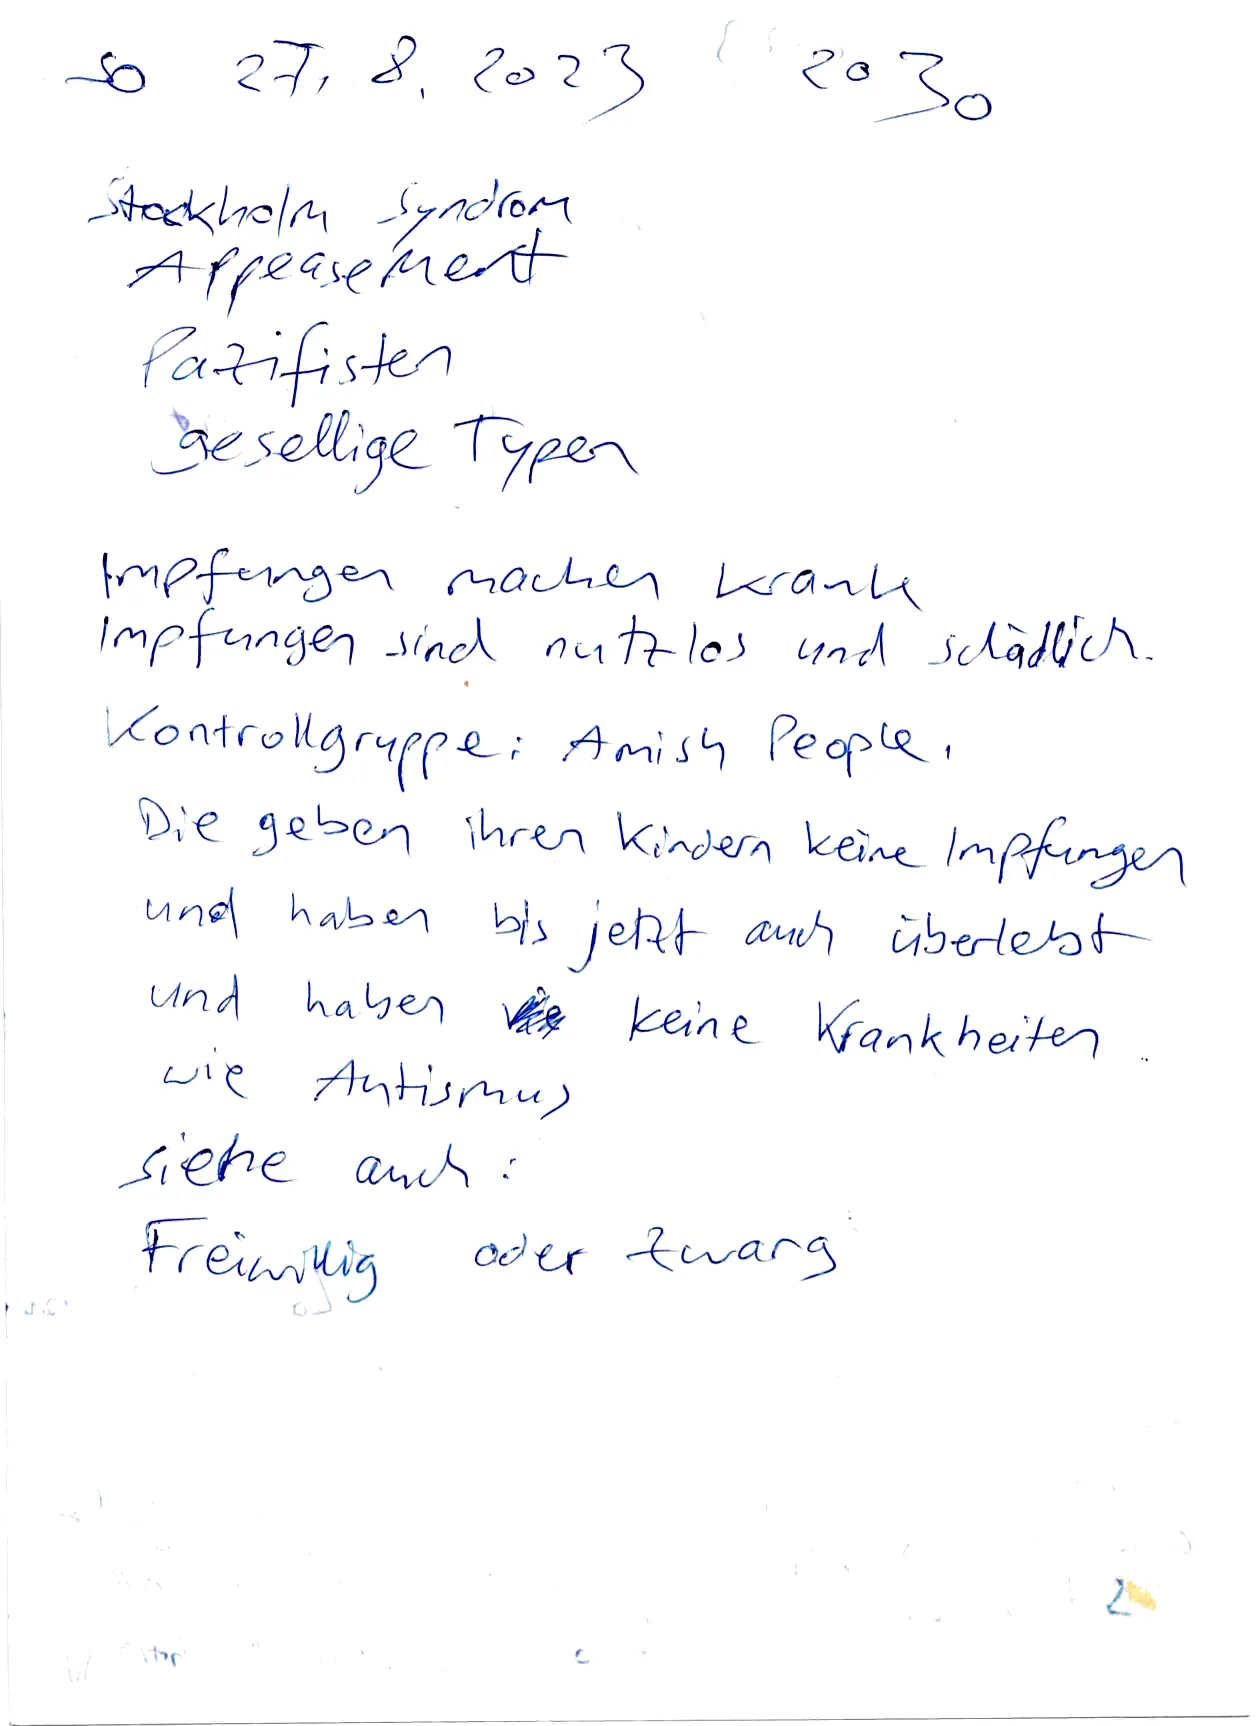 So 27. 8. 2023 2030
Stockholm Syndrom
Appeasement
Pazifisten
gesellige Typen
Impfungen machen krank
Impfungen sind nutzlos und schädlich.
Kontrollgruppe: Amish People.
Die geben ihren Kindern keine Impfungen
und haben bis jetzt auch überlebt
und haben keine Krankheiten
wie Autismus
siehe auch:
Freiwillig oder Zwang
2